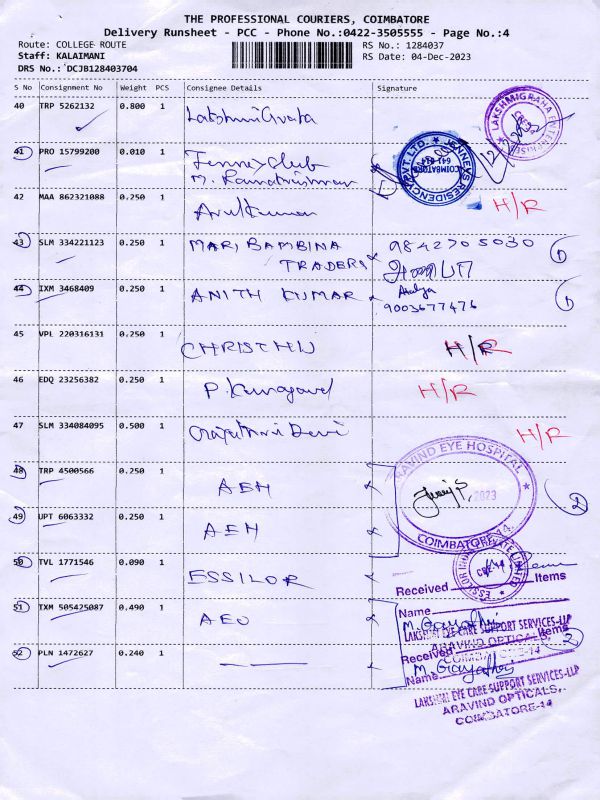 THE PROFESSIONAL COURIERS, COIMBATORE
Delivery Runsheet - PCC - Phone No.:0422-3505555 - Page No.:4
Route: COLLEGE ROUTE RS No.: 1284037
Staff: KALAIMANI RS Date: 04-Dec-2023
DRS No.: DCJB128403704
S No Consignment No Weight PCS Consignee Details Signature
40 TRP 5262132 0.800 1
LAKSHMIGRAHA ENTERPRISES
41 PRO 15799200 0.010 1 Jenneys Club
M. Ramakrishnan
JENNEYS RESIDENCY PVT. LTD.
COIMBATORE
641 014
42 MAA 862321088 0.250 1 Arul Kumar H/R
43 SLM 334221123 0.250 1 MARI BAMBINA 9842705030 1
TRADERS
44 IXM 3468409 0.250 1 ANITH KUMAR 1
9003677476
45 VPL 220316131 0.250 1 CHRISTHU H/R
46 EDQ 23256382 0.250 1 P. Kanagavel H/R
47 SLM 334084095 0.500 1 Devi H/R
48 TRP 4500566 0.250 1 AEH
ARAVIND EYE HOSPITAL
2023
COIMBATORE-14.
2
49 UPT 6063332 0.250 1 AEH
50 TVL 1771546 0.090 1 ESSILOR
Received Items
51 TXM 505425087 0.490 1 AEO
Name
M. Gayathri
LAKSHMI EYE CARE SUPPORT SERVICES-LLP
ARAVIND OPTICALS,
COIMBATORE-14
52 PLN 1472627 0.240 1
Received Items 2
Name M. Gayathri
LAKSHMI EYE CARE SUPPORT SERVICES-LLP
ARAVIND OPTICALS,
COIMBATORE-14